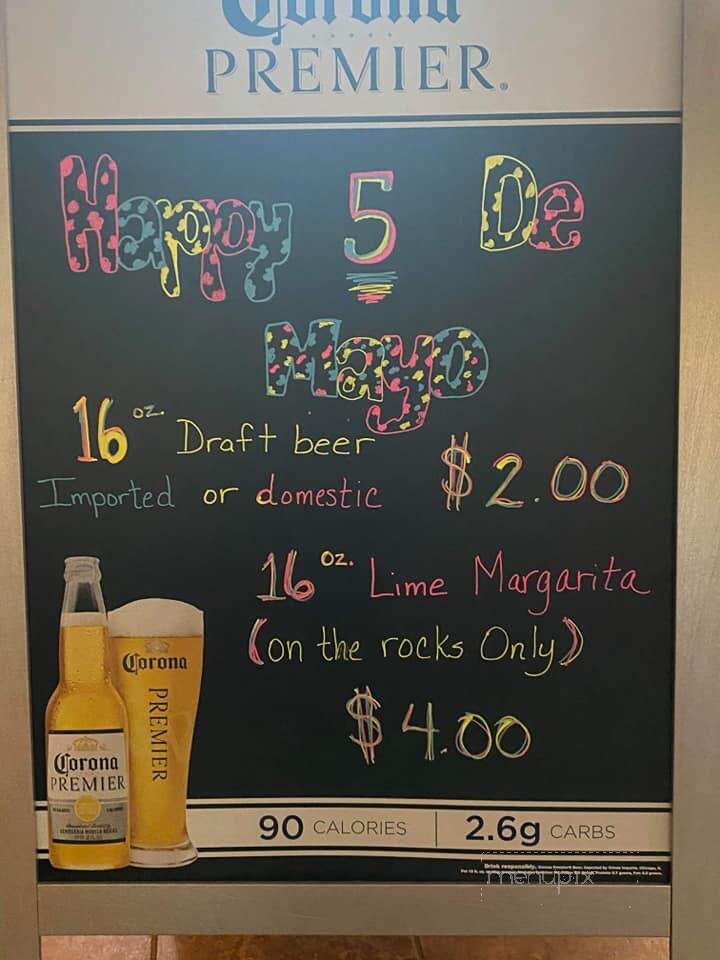 Corona
PREMIER.
Happy 5 De
Mayo
16 oz. Draft beer
Imported or domestic $2.00
16 oz. Lime Margarita
(on the rocks Only)
$4.00
Corona
PREMIER
Corona
PREMIER
90 CALORIES 2.6g CARBS
Drink responsibly.
menupix